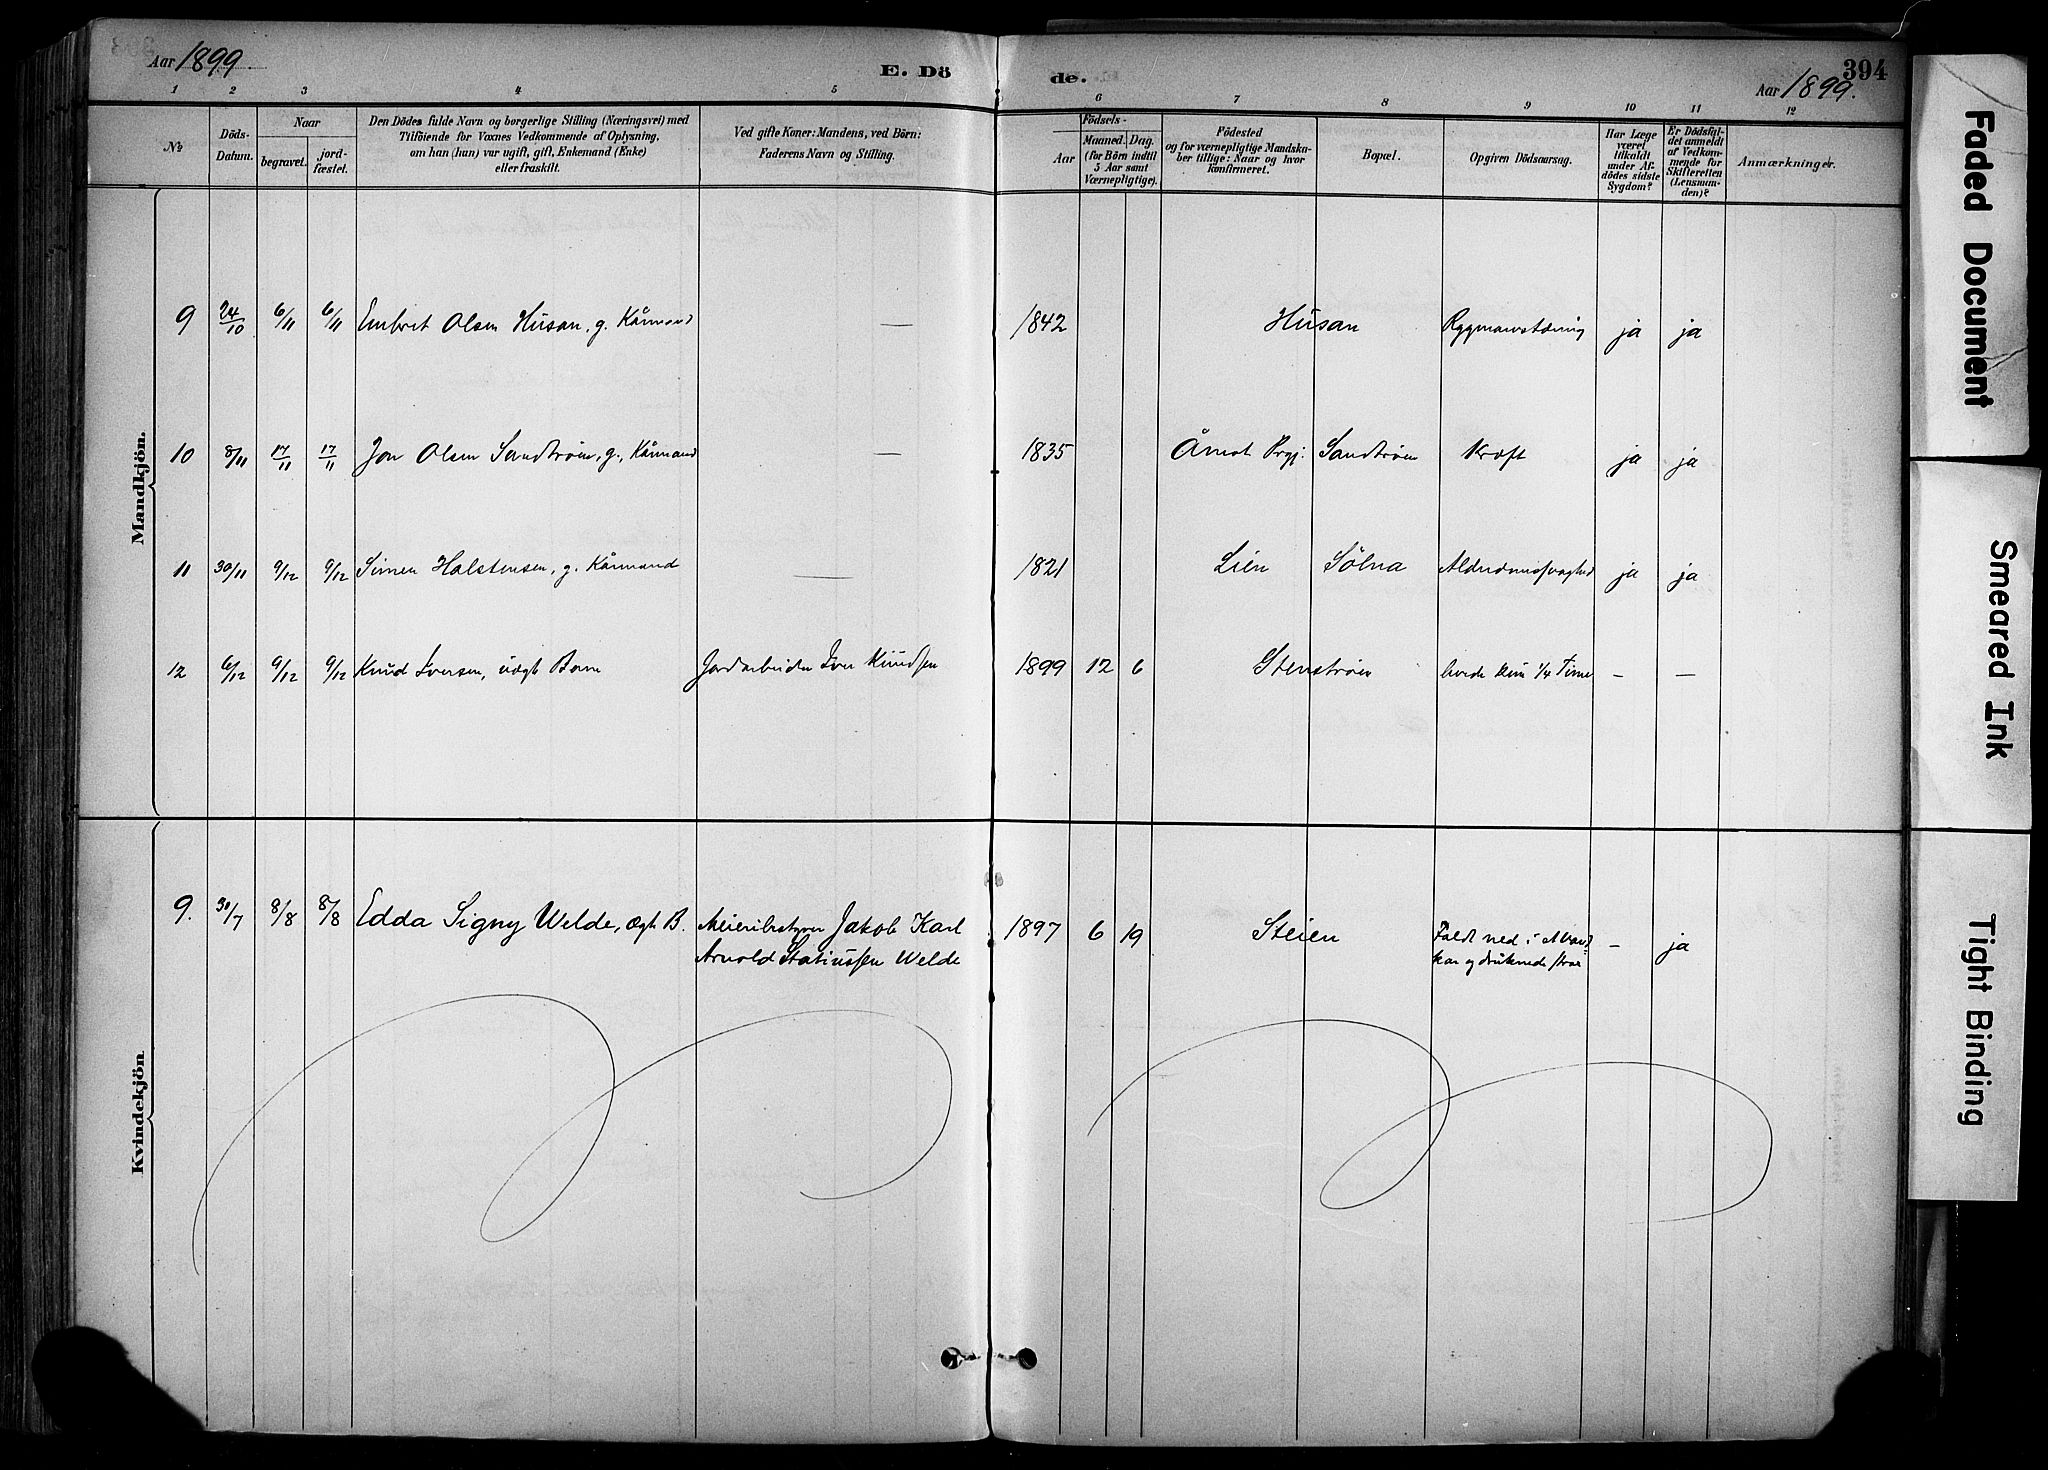 Aar 1899.
E. Dö
de.
394
Aar 1899.
1 2 3 4 5 6 7 8 9 10 11 12
№
Döds-
Datum.
Naar
begravet.
jord-
fæstet.
Den Dödes fulde Navn og borgerlige Stilling (Næringsvei) med
Tilföiende for Voxnes Vedkommende af Oplysning,
om han (hun) var ugift, gift, Enkemand (Enke)
eller fraskilt.
Ved gifte Koner: Mandens, ved Börn:
Faderens Navn og Stilling.
Födsels-
Aar
Maaned. Dag.
(for Börn indtil
5 Aar samt
Værnepligtige).
Födested
og for værnepligtige Mandska-
ber tillige: Naar og hvor
konfirmeret.
Bopæl.
Opgiven Dödsaarsag.
Har Læge
været
tilkaldt
under Af-
dödes sidste
Sygdom?
Er Dödsfal-
det anmeldt
af Vedkom-
mende for
Skifteretten
(Lensman-
den)?
Anmærkninger.
Mandkjön.
9 24/10 6/11 6/11 Embret Olsen Husan, g. Kårmand — 1842 Husan Rygmarvstæring ja ja
10 8/11 17/11 17/11 Jon Olsen Sandtrøen, g., Kårmand — 1835 Åmot Prgj. Sandtrøen Kræft ja ja
11 30/11 9/12 9/12 Simen Halstensen, g. Kårmand — 1821 Lien Sölna Alderdomssvaghed ja ja
12 6/12 9/12 9/12 Knud Iversen, uægt Barn Jordarbeider Iver Knudsen 1899 12 6 Stenstrøen levede kun 1/4 Time — —
Kvindekjön.
9. 30/7 8/8 8/8 Edda Signy Welde, ægt B. Meieribestyrer Jakob Karl 1897 6 19 Steien Faldt ned i et Vand- — ja
Arnold Statiussen Welde kar og druknede strax
Faded Document
Smeared Ink
Tight Binding